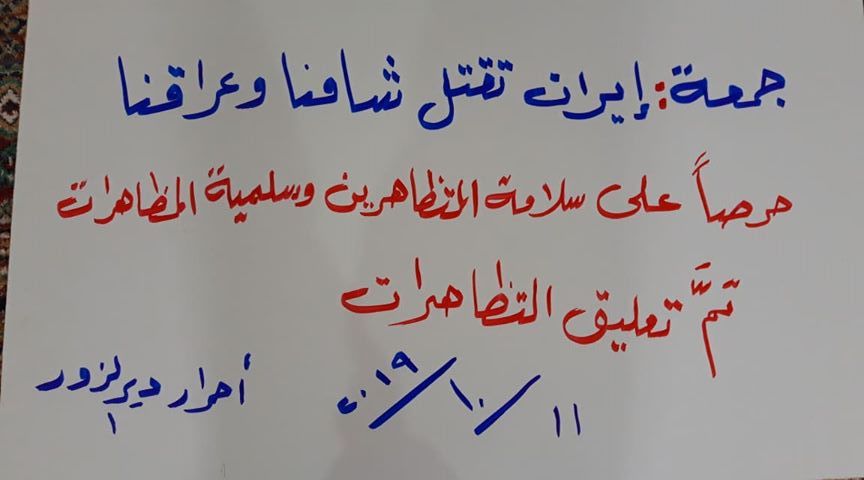 جمعة: إيران تقتل شامنا وعراقنا
حرصاً على سلامة المتظاهرين وسلمية المظاهرات
تمَّ تعليق التظاهرات
١١/١٠/٢٠١٩
أحرار ديرلزور
١